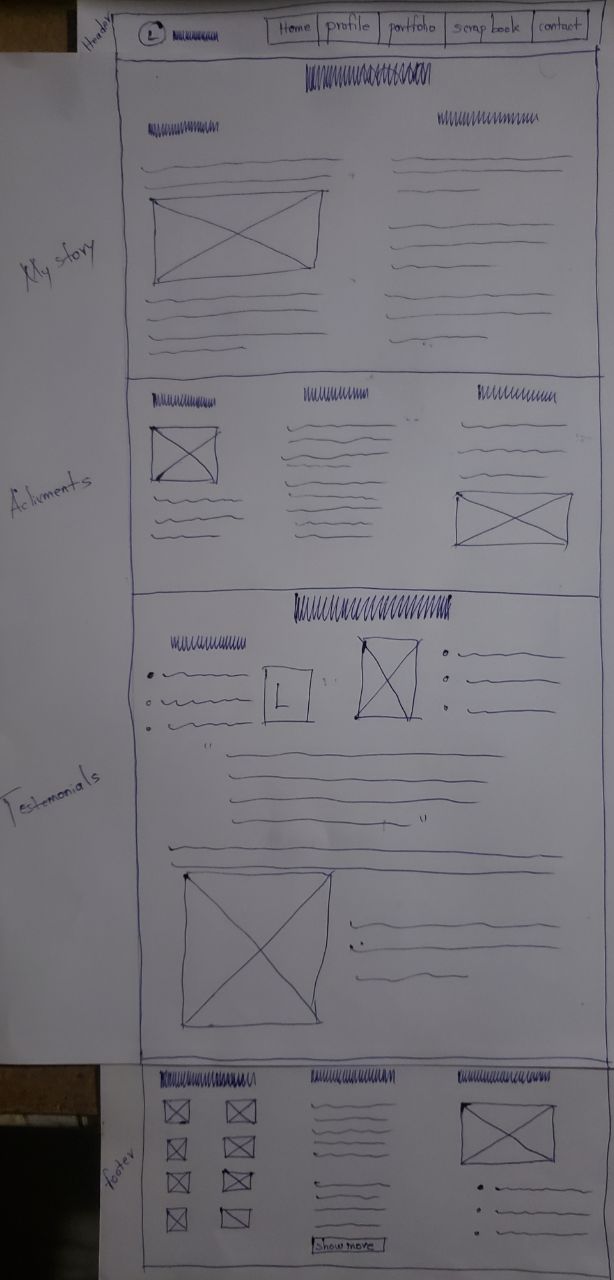 Header
L
Home profile portfolio scrap book contact
My story
Achivments
L
"
"
Testemonials
footer
show more